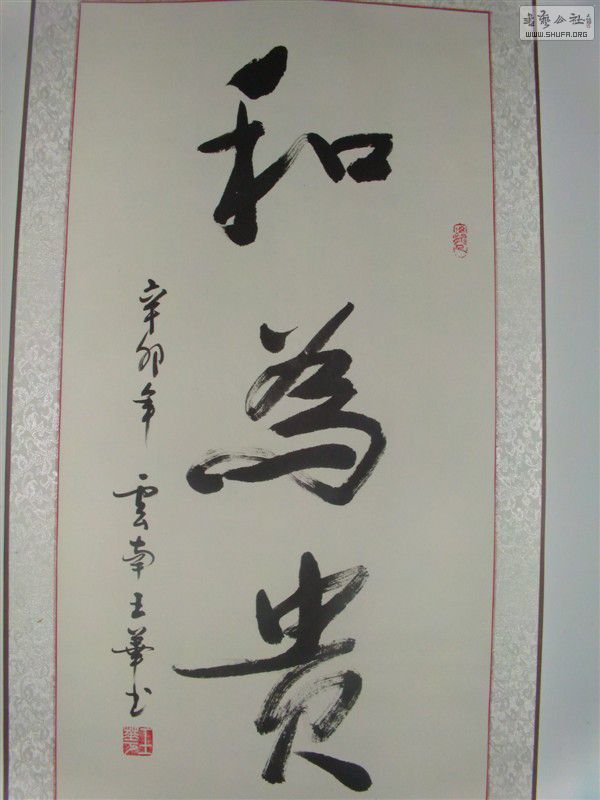 和為貴
辛卯年 雲南王華書
書藝公社
WWW.SHUFA.ORG